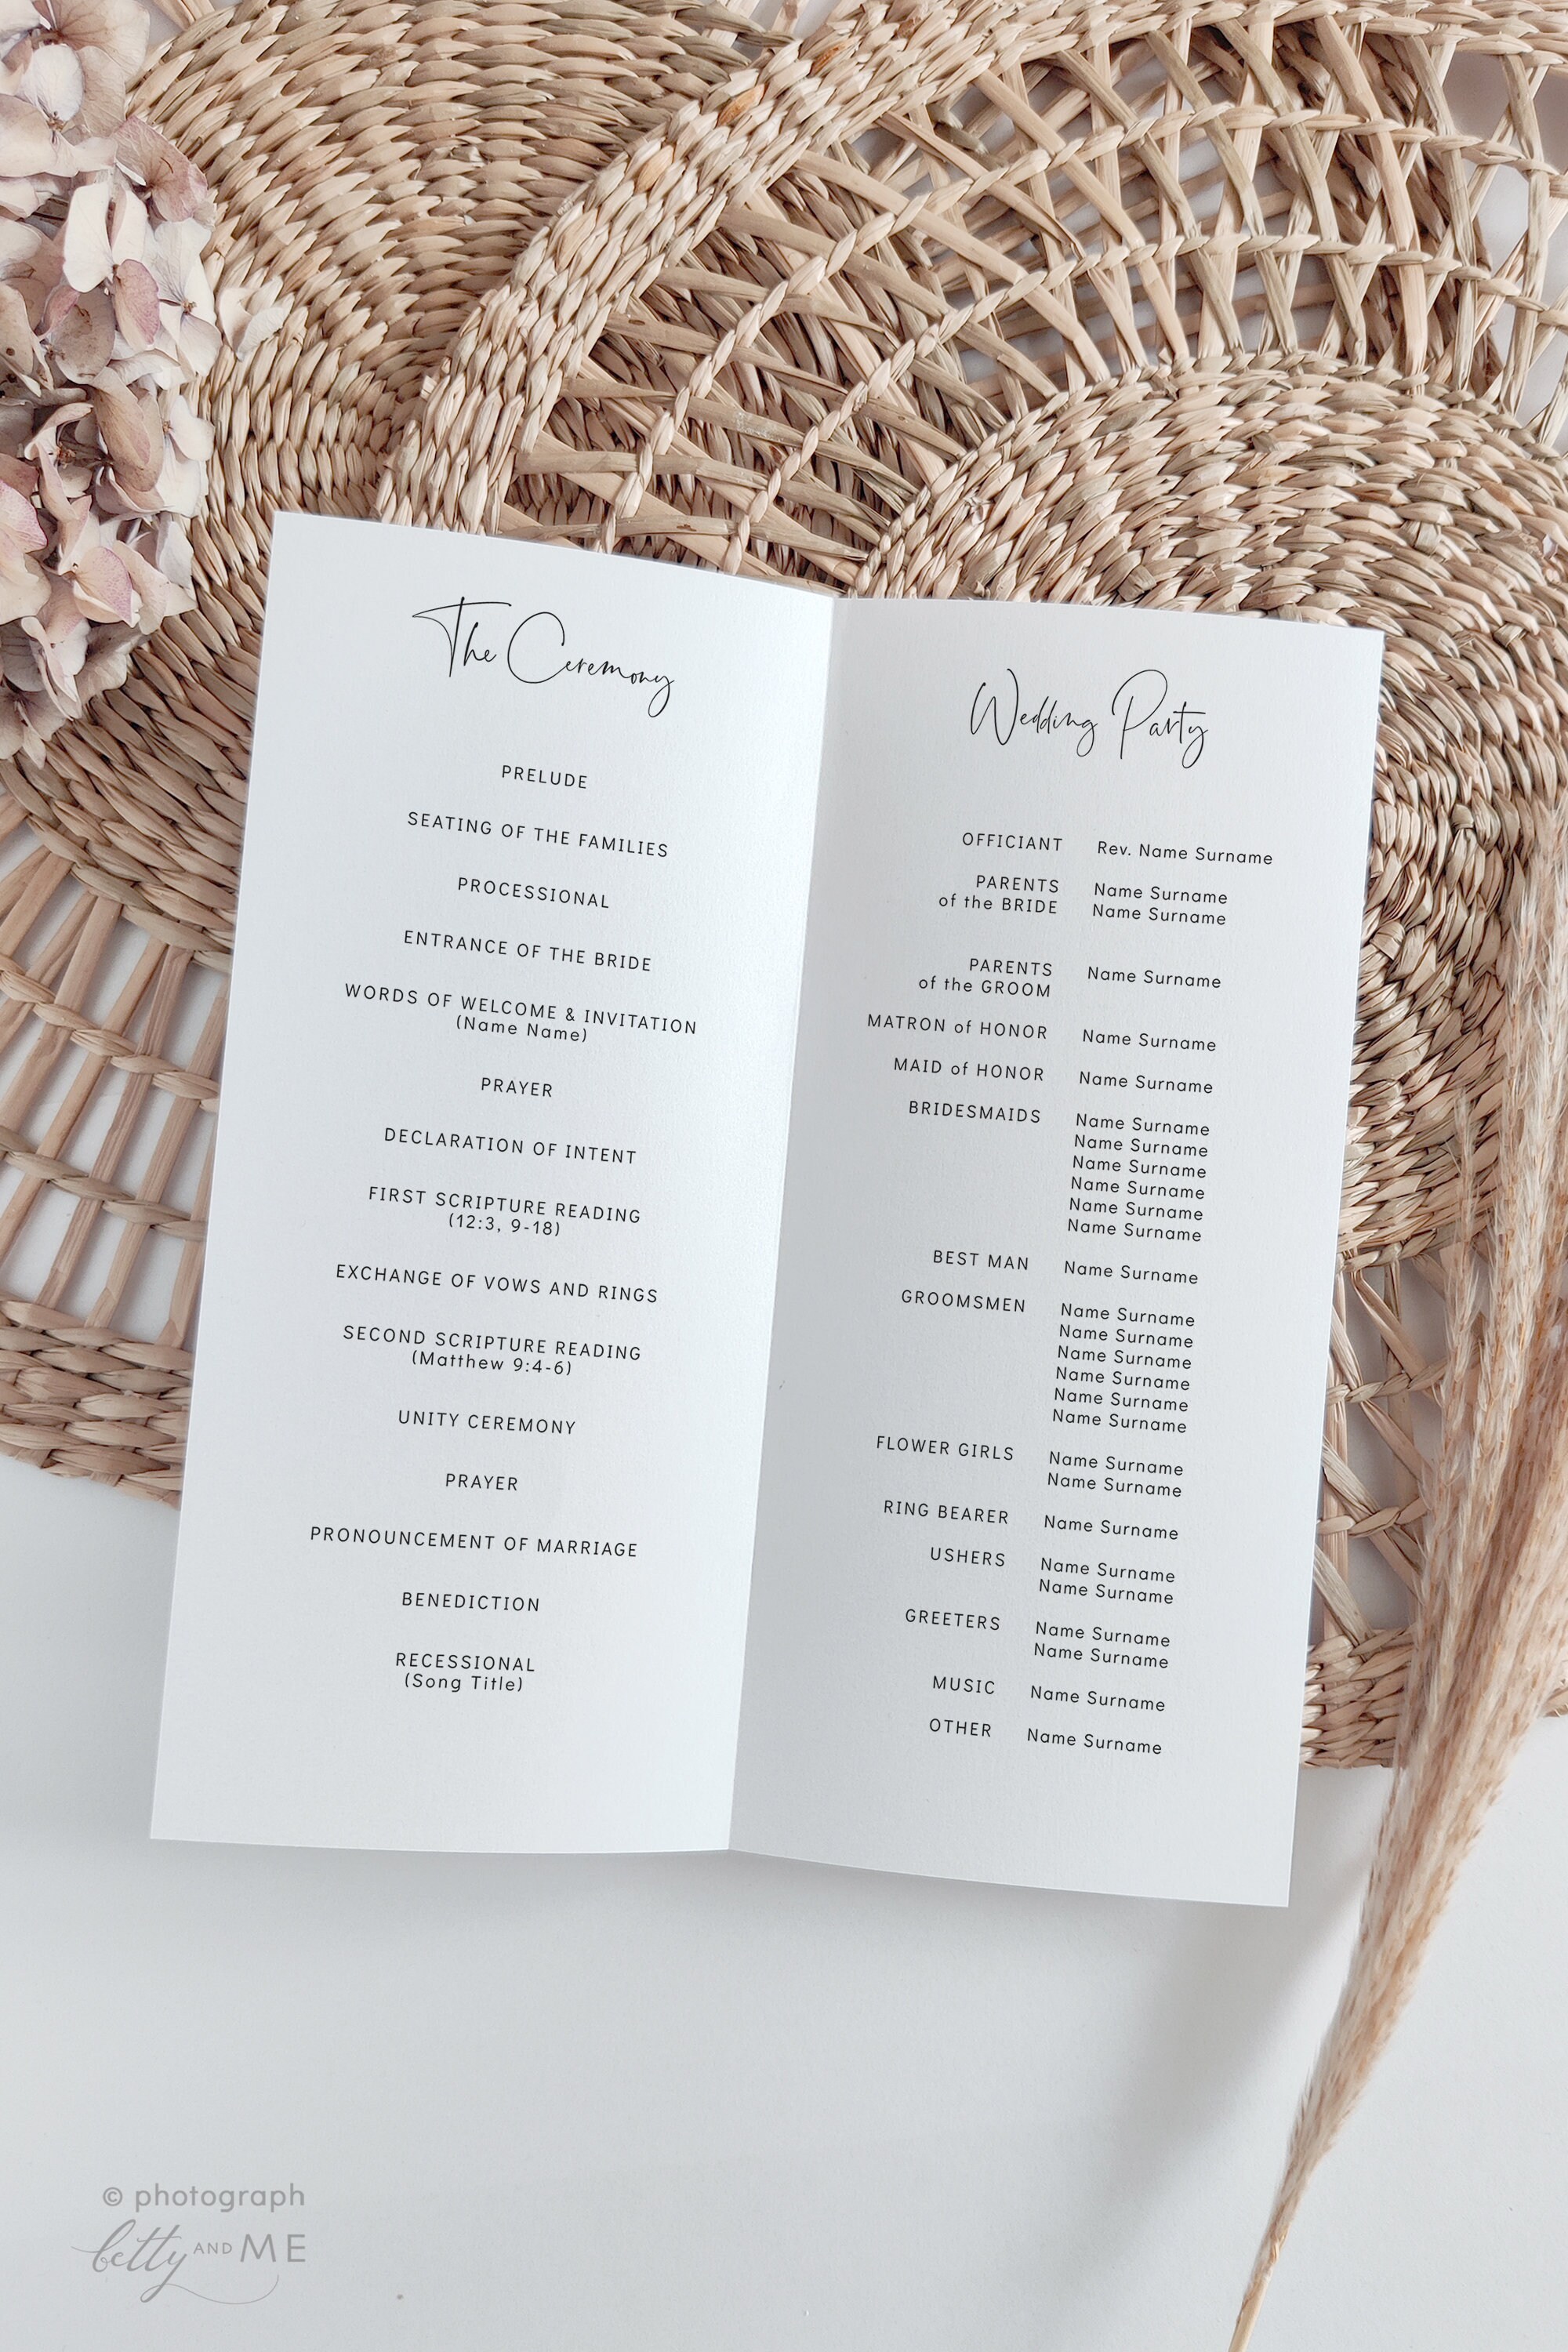 The Ceremony
PRELUDE
SEATING OF THE FAMILIES
PROCESSIONAL
ENTRANCE OF THE BRIDE
WORDS OF WELCOME & INVITATION
(Name Name)
PRAYER
DECLARATION OF INTENT
FIRST SCRIPTURE READING
(12:3, 9-18)
EXCHANGE OF VOWS AND RINGS
SECOND SCRIPTURE READING
(Matthew 9:4-6)
UNITY CEREMONY
PRAYER
PRONOUNCEMENT OF MARRIAGE
BENEDICTION
RECESSIONAL
(Song Title)
Wedding Party
OFFICIANT Rev. Name Surname
PARENTS Name Surname
of the BRIDE Name Surname
PARENTS Name Surname
of the GROOM
MATRON of HONOR Name Surname
MAID of HONOR Name Surname
BRIDESMAIDS Name Surname
Name Surname
Name Surname
Name Surname
Name Surname
Name Surname
BEST MAN Name Surname
GROOMSMEN Name Surname
Name Surname
Name Surname
Name Surname
Name Surname
Name Surname
FLOWER GIRLS Name Surname
Name Surname
RING BEARER Name Surname
USHERS Name Surname
Name Surname
GREETERS Name Surname
Name Surname
MUSIC Name Surname
OTHER Name Surname
© photograph
betty AND ME